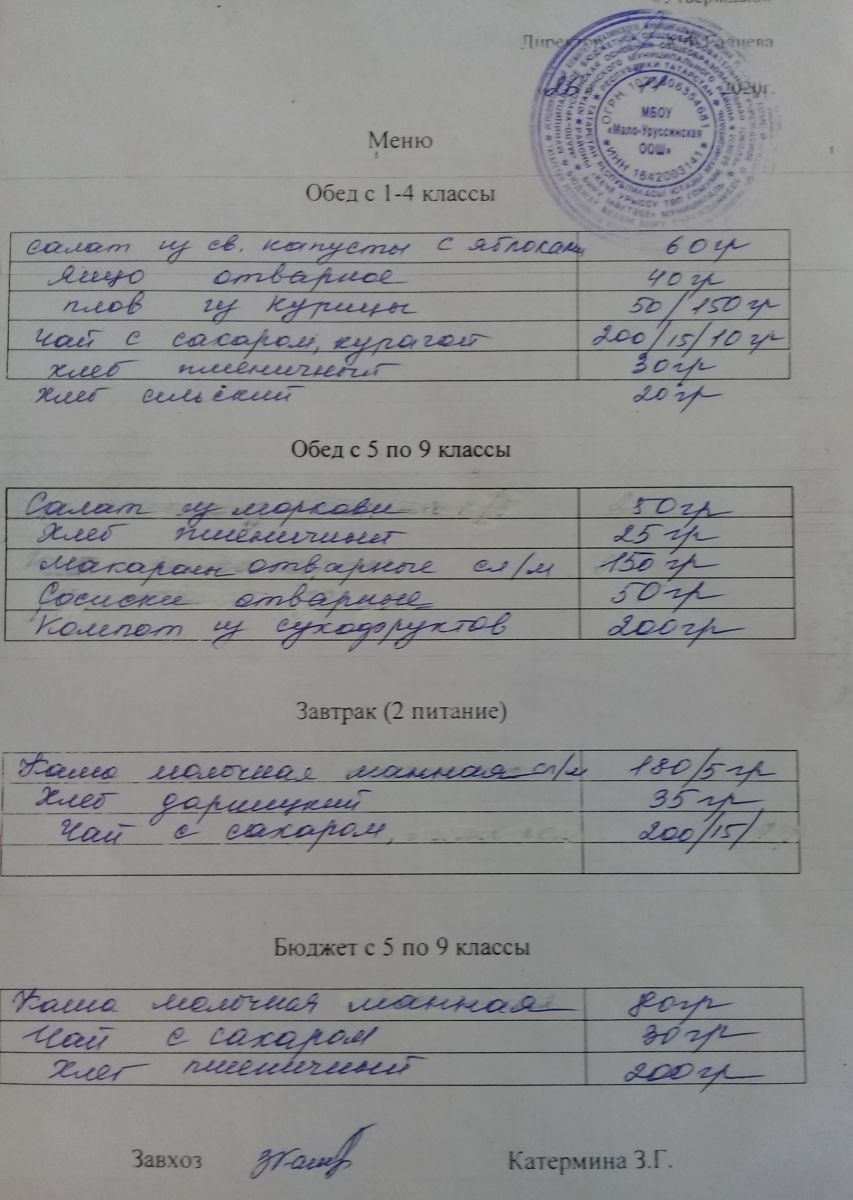 «Утверждаю»
Директор
2020г.
МБОУ
«Мало-Уруссинская
ООШ»
ИНН 1642003141
Меню
Обед с 1-4 классы
салат из св. капусты с яблоками 60гр
Яйцо отварное 40гр
плов из курицы 50/150гр
Чай с сахаром, курагой 200/15/10гр
хлеб пшеничный 30гр
хлеб сильский 20гр
Обед с 5 по 9 классы
Салат из моркови 50гр
Хлеб пшеничный 25гр
Макароны отварные сл/м 150гр
Сосиски отварные 50гр
Компот из сухофруктов 200гр
Завтрак (2 питание)
Каша молочная манная сл/м 180/5гр
Хлеб дарницкий 35гр
Чай с сахаром, 200/15/
Бюджет с 5 по 9 классы
Каша молочная манная 80гр
Чай с сахаром 30гр
Хлеб пшеничный 200гр
Завхоз Катермина З.Г.